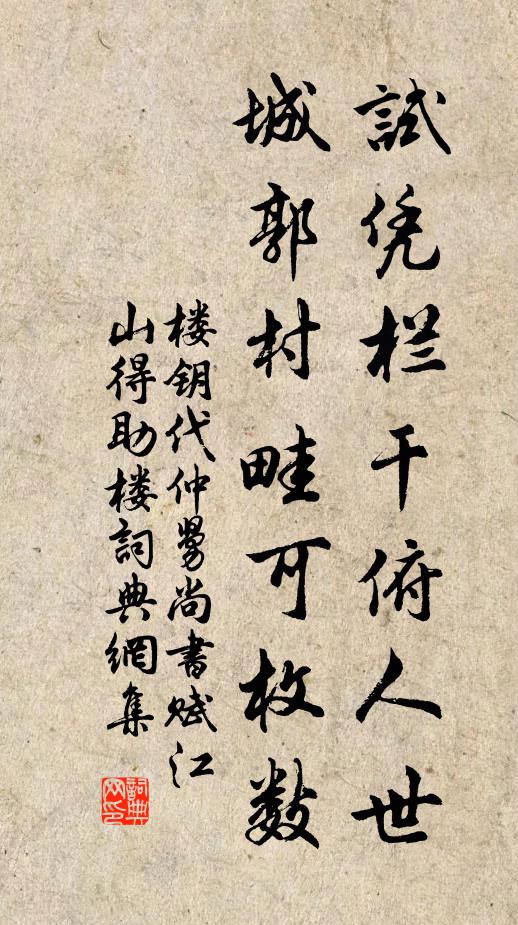 試凭栏干俯人世
城郭村畦可枚数
楼钥代仲舅尚書赋江
山得助楼詞典網集
詞典網印